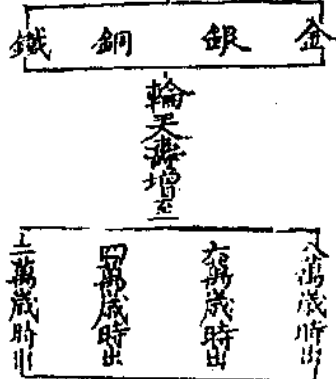 金 銀 銅 鐵
輪天壽增至
八萬歲時出
六萬歲時出
四萬歲時出
二萬歲時出